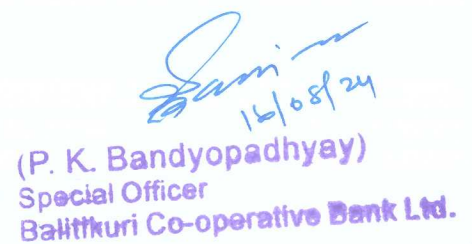 16/08/24
(P. K. Bandyopadhyay)
Special Officer
Balitikuri Co-operative Bank Ltd.